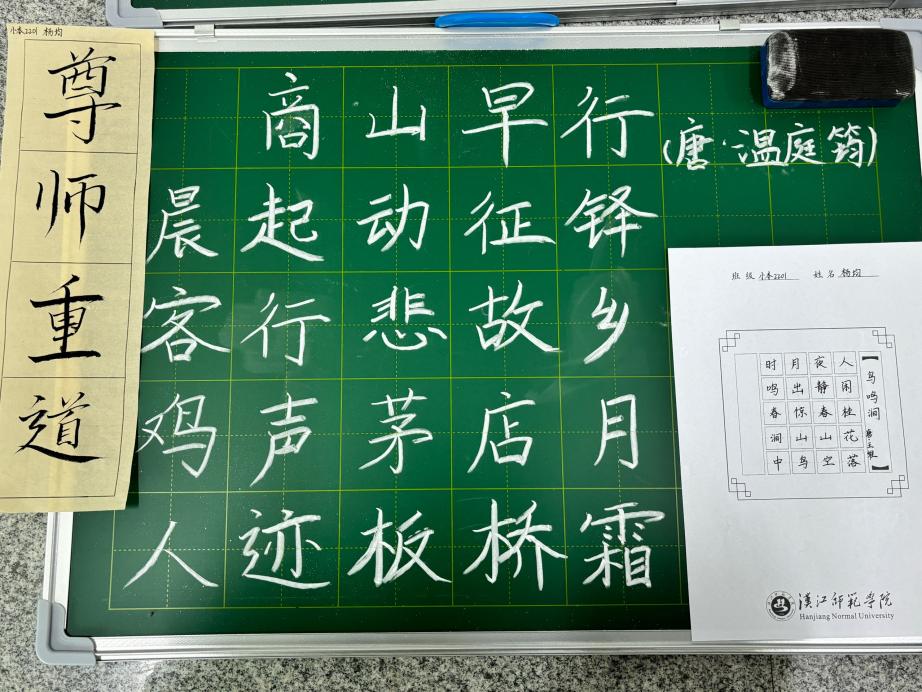 小本2201
尊师重道
商山早行
(唐·温庭筠)
晨起动征铎
客行悲故乡
鸡声茅店月
人迹板桥霜
班级 小本2201 姓名
【鸟鸣涧 唐王维】
人闲桂花落
夜静春山空
月出惊山鸟
时鸣春涧中
漢江师範学院
Hanjiang Normal University